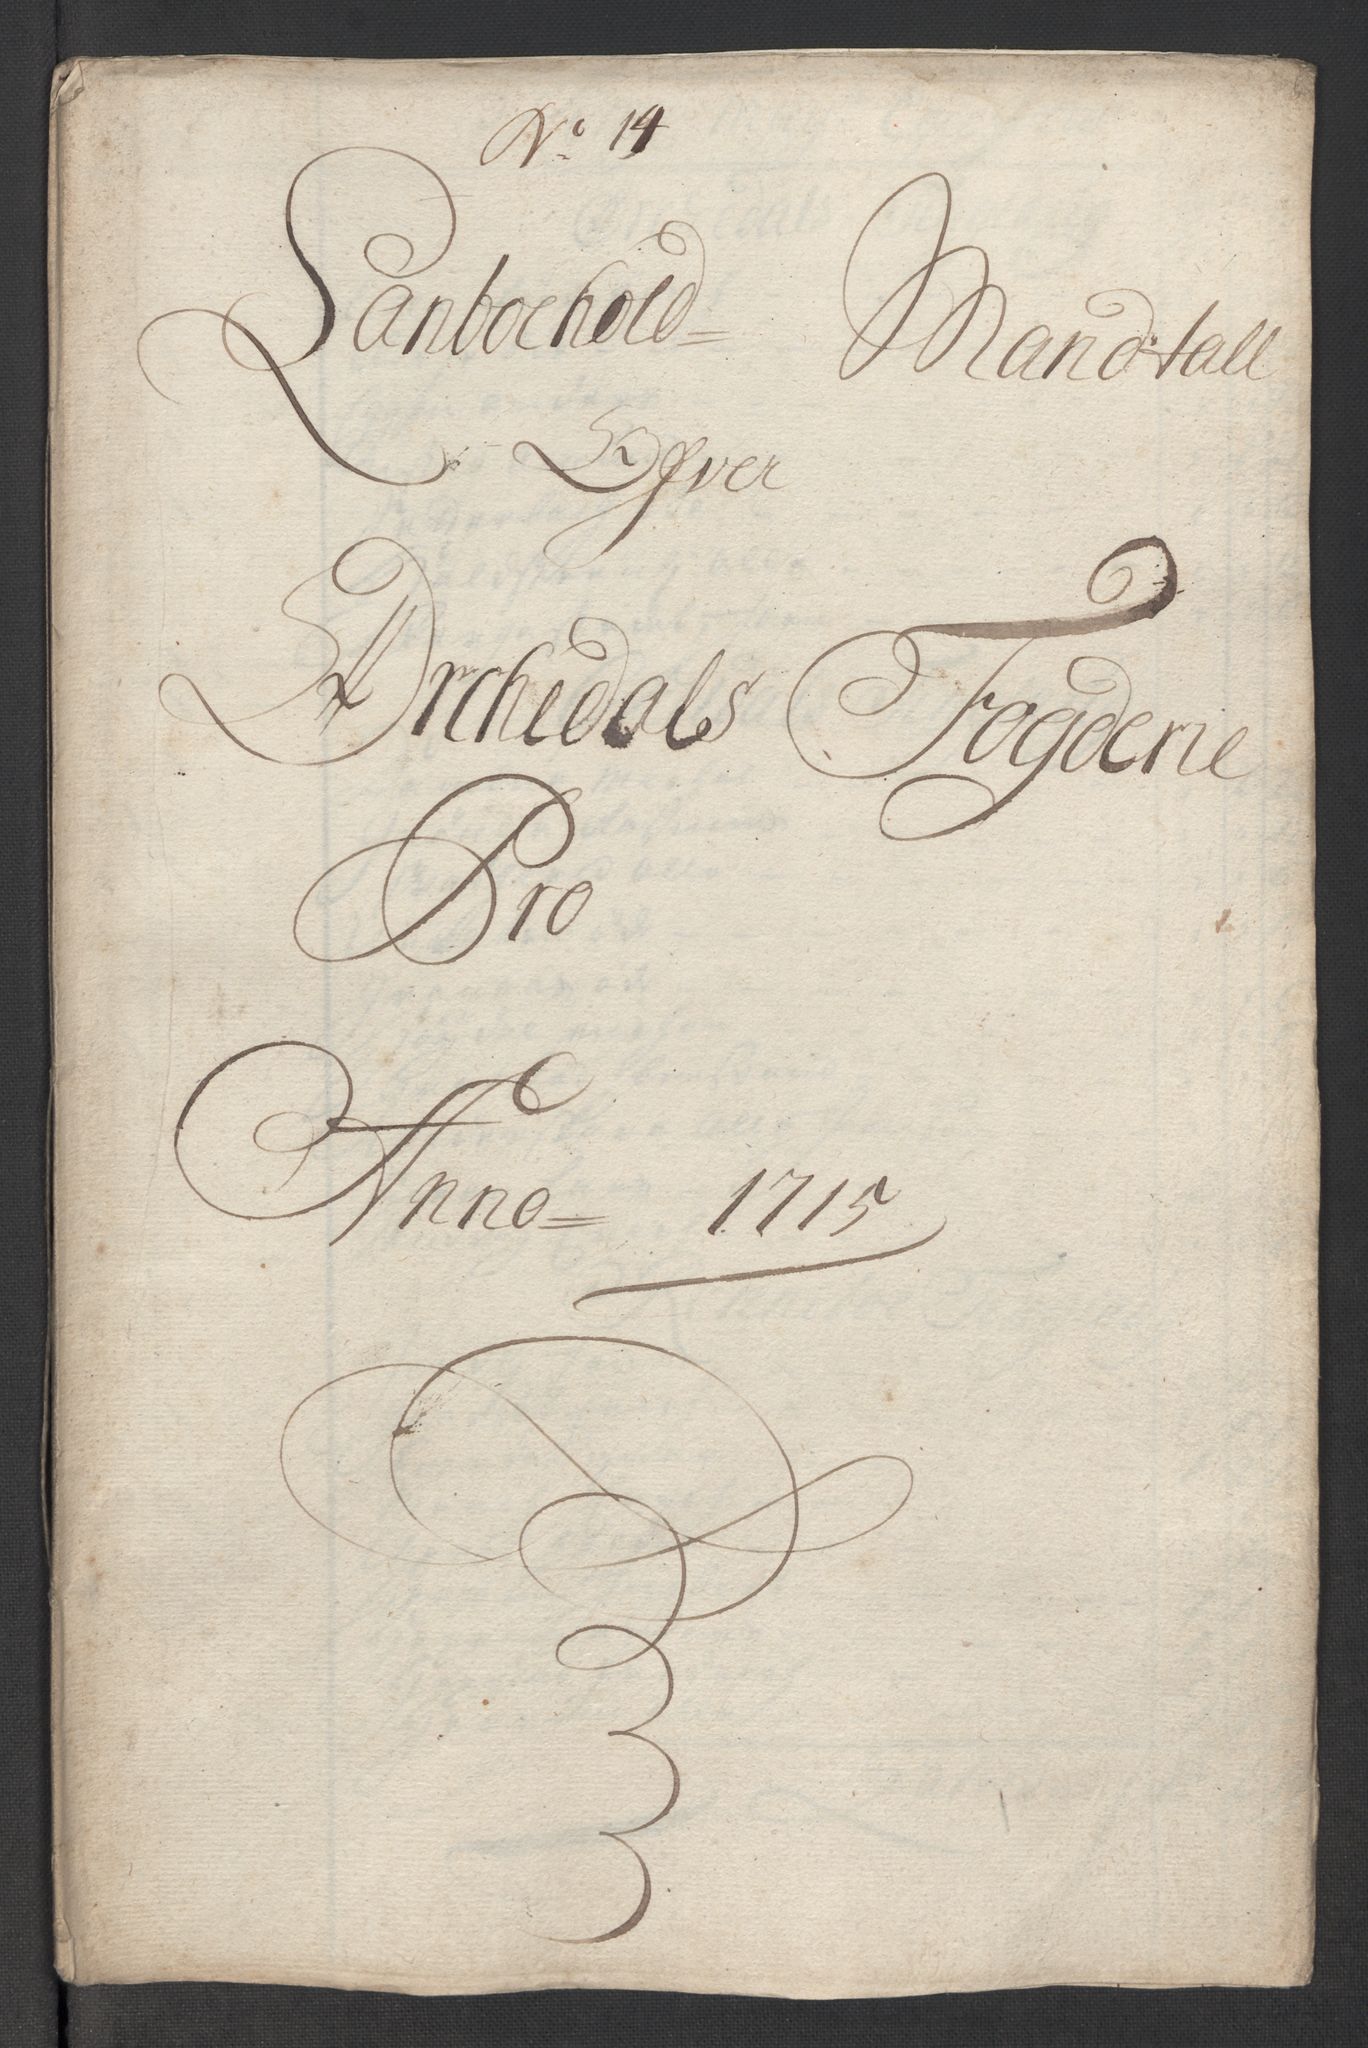 No 14
Lanboehold= Mandtall
Ofver
Orchedals Fogderie
Pro
Anno= 1715